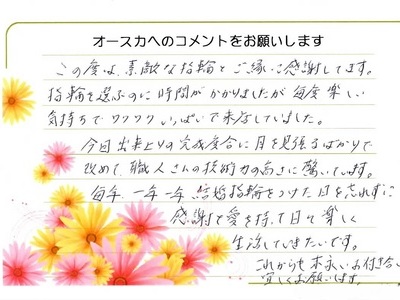 オースカへのコメントをお願いします
この度は、素敵な指輪とご縁に感謝してます。
指輪を選ぶのに時間がかかりましたが毎度楽しい
気持ちでワクワクいっぱいで来店していました。
今回出来上りの完成度合に目を見張るばかりで
改めて、職人さんの技術力の高さに驚いています。
毎年、一年一年結婚指輪をつけた日を忘れずに
感謝で愛を持って日々楽しく
生活していきたいです。
これからも末永いお付き合い
宜しくお願います。